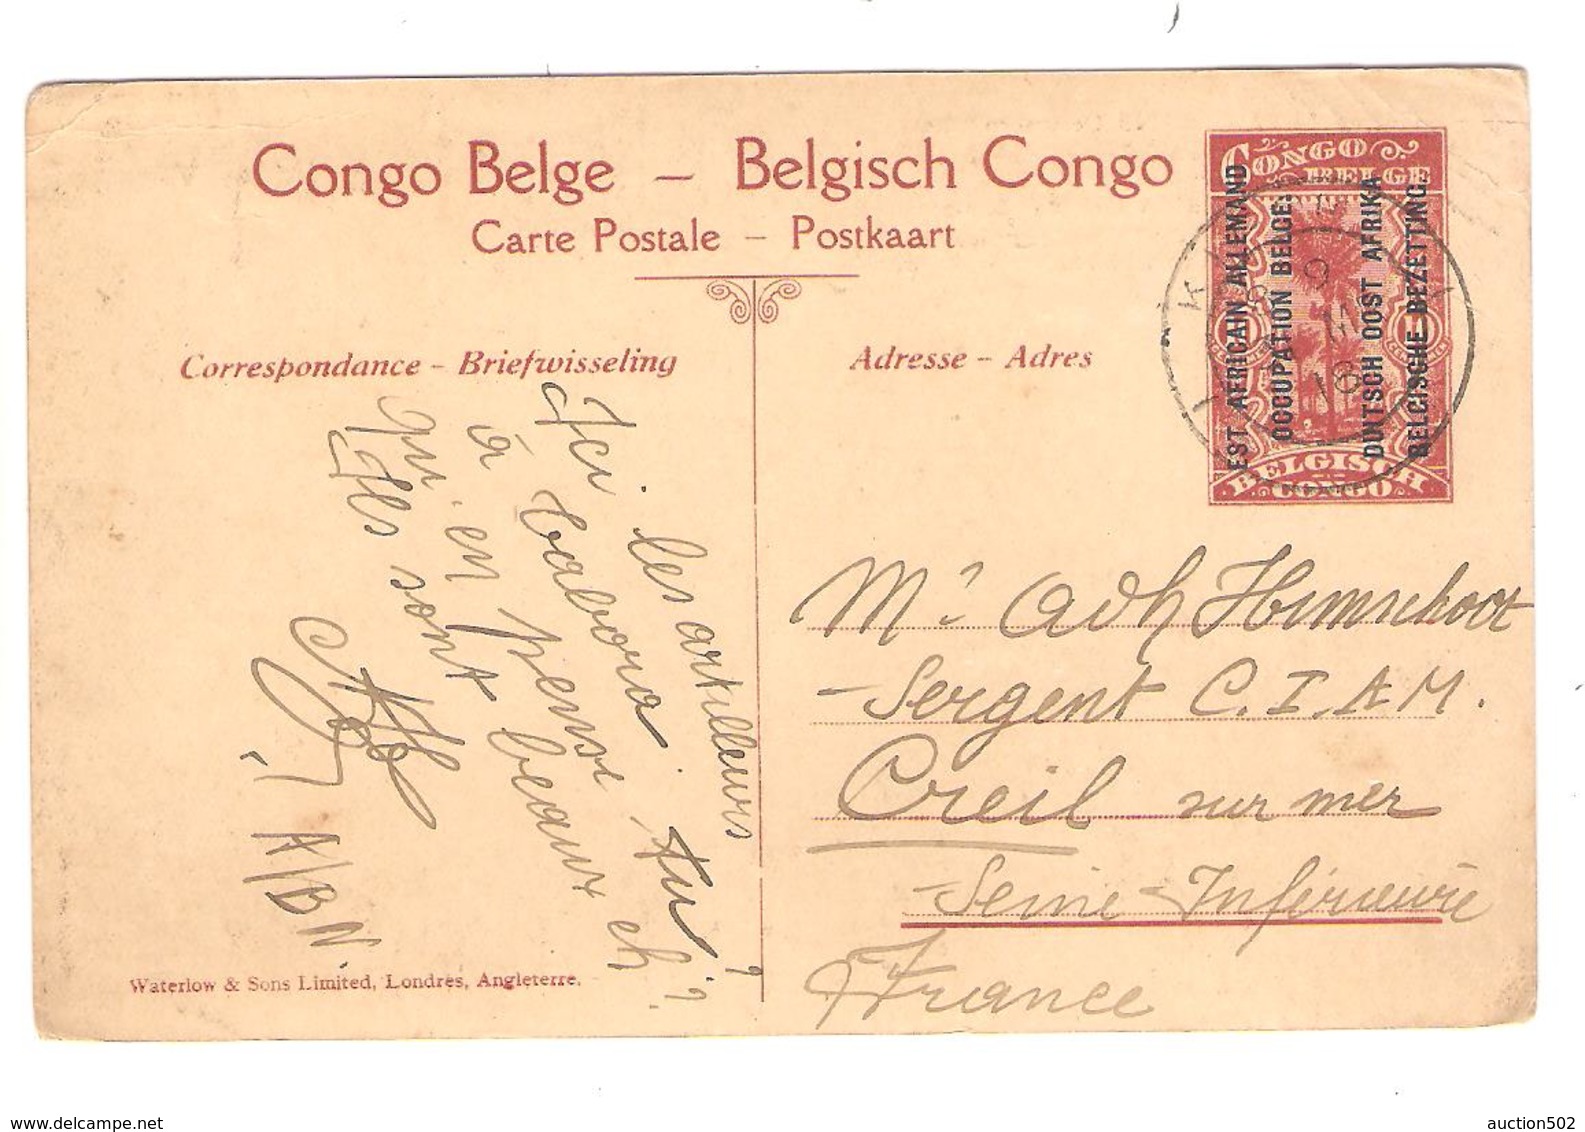 Congo Belge – Belgisch Congo
Carte Postale – Postkaart
Correspondance – Briefwisseling
Adresse – Adres
CONGO
BELGE
EST AFRICAIN ALLEMAND
OCCUPATION BELGE.
DUITSCH OOST AFRIKA
BELGISCHE BEZETTING.
10
10
BELGISCH
CONGO
Ici les artilleurs
à Tabora. tu
qu'en pense
Ils sont beaux eh
A/BN
Mr Adh
Sergent C.I.A.M.
Creil sur mer
Seine-Inférieure
France
Waterlow & Sons Limited, Londres, Angleterre.
delcampe.net
auction502